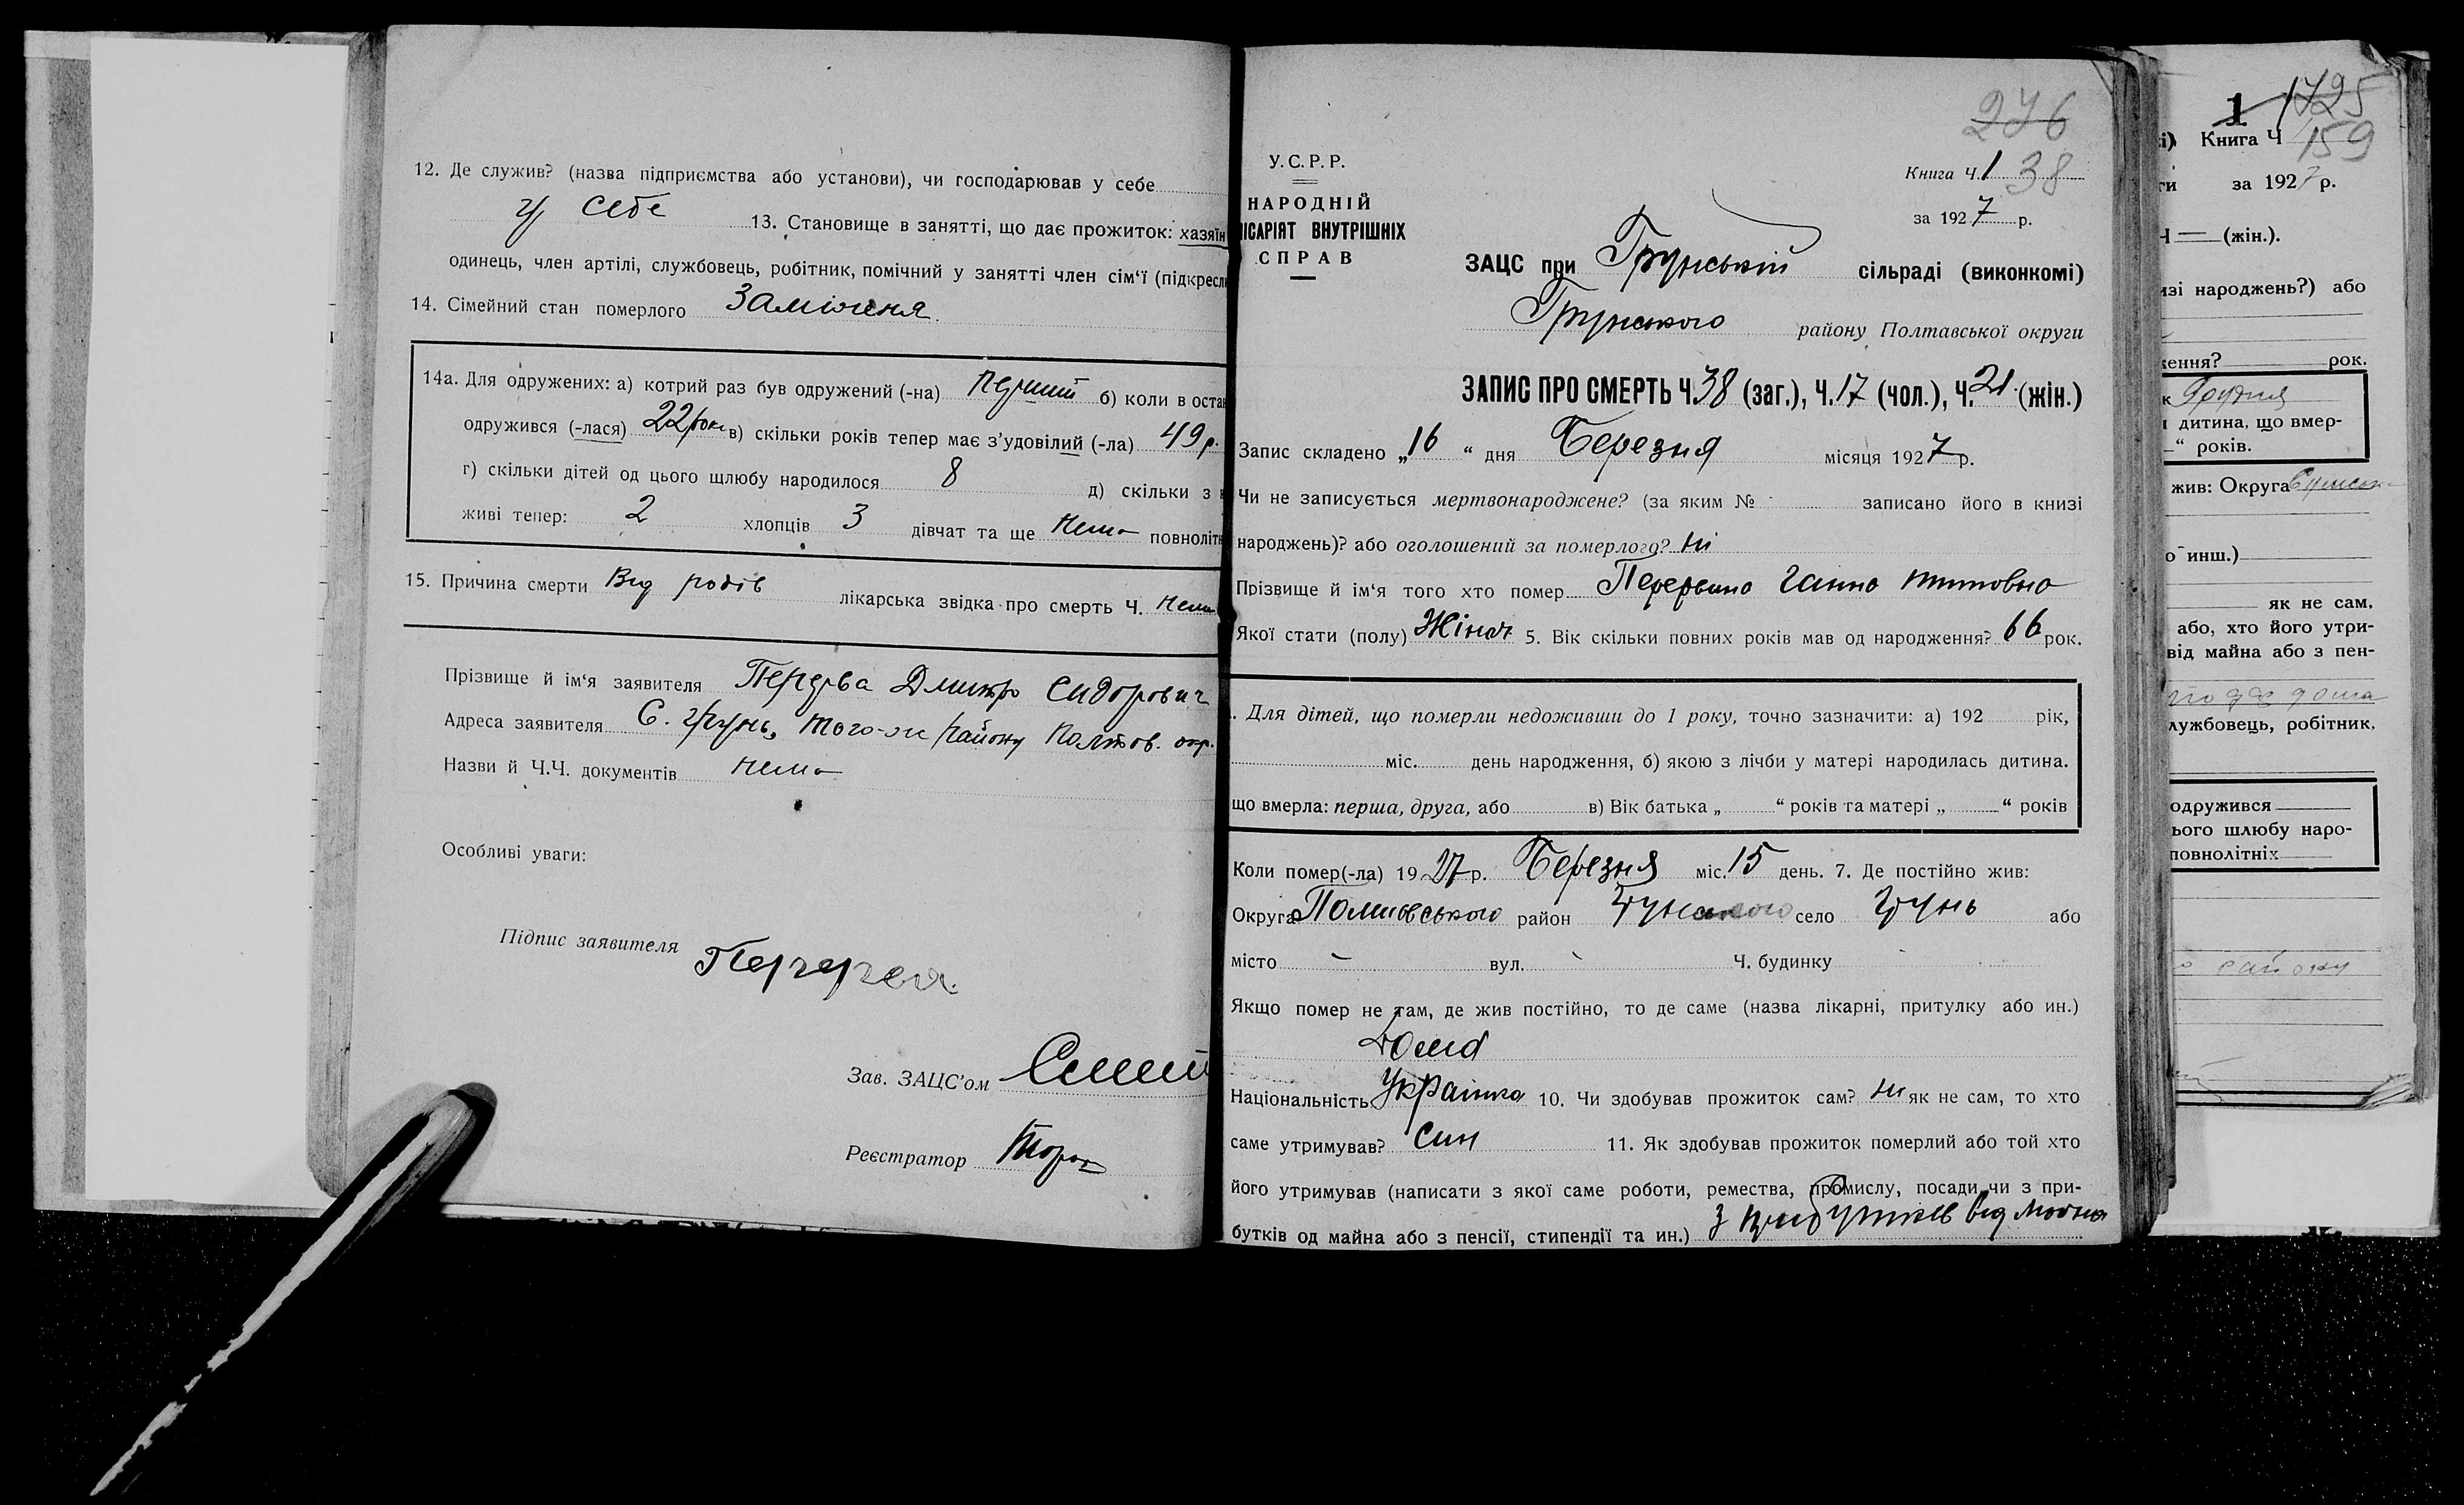 12. Де служив? (назва підприємства або установи), чи господарював у себе
у себе 13. Становище в занятті, що дає прожиток: хазяїн
одинець, член артілі, службовець, робітник, помічний у занятті член сім'ї (підкресл
14. Сімейний стан померлого Заміжня.
14а. Для одружених: а) котрий раз був одружений (-на) перший б) коли в оста
одружився (-лася) 22 роки в) скільки років тепер має з'удовілий (-ла) 49 р.
г) скільки дітей од цього щлюбу народилося 8 д) скільки з
живі тепер: 2 хлопців 3 дівчат та ще нема повноліт
15. Причина смерти Від родів лікарська звідка про смерть Ч. нема
Прізвище й ім'я заявителя Дмитро Сидорович
Адреса заявителя С. Грунь, того-ж району Полтов. окр.
Назви й Ч.Ч. документів нема
Особливі уваги:
Підпис заявителя
Зав. ЗАЦС'ом
Реєстратор
276
У.С.Р.Р.
НАРОДНІЙ
ІСАРІЯТ ВНУТРІШНІХ
СПРАВ
Книга Ч. 1 38
за 1927 р.
ЗАЦС при Грунській сільраді (виконкомі)
Грунського району Полтавської округи
ЗАПИС ПРО СМЕРТЬ Ч. 38 (заг.), Ч. 17 (чол.), Ч. 21 (жін.)
Запис складено „16“ дня Березня місяця 1927 р.
Чи не записується мертвонароджене? (за яким № - записано його в книзі
народжень)? або оголошений за померлого? ні
Прізвище й ім'я того хто помер Перервино Ганна Титовно
Якої стати (полу) Жіноч 5. Вік скільки повних років мав од народження? 66 рок.
. Для дітей, що померли недоживши до 1 року, точно зазначити: а) 192 рік,
міс. день народження, б) якою з лічби у матері народилась дитина.
що вмерла: перша, друга, або в) Вік батька „ “ років та матері „ “ років
Коли помер(-ла) 1927 р. Березня міс. 15 день. 7. Де постійно жив:
Округа Полтавського район Грунського село Грунь або
місто - вул. Ч. будинку
Якщо помер не там, де жив постійно, то де саме (назва лікарні, притулку або ин.)
Дома
Національність Українка 10. Чи здобував прожиток сам? ні як не сам, то хто
саме утримував? син 11. Як здобував прожиток померлий або той хто
його утримував (написати з якої саме роботи, ремества, промислу, посади чи з при-
бутків од майна або з пенсії, стипендії та ин.) З прибутків від майна
1 1725
і) Книга Ч 159
ги за 1927 р.
Ч — (жін.).
изі народжень?) або
ження? рок.
к Грудня
дитина, що вмер-
“ років.
жив: Округа Сумськ
о инш.)
як не сам,
або, хто його утри-
від майна або з пен-
лужбовець, робітник,
одружився
ього шлюбу наро-
повнолітніх
району